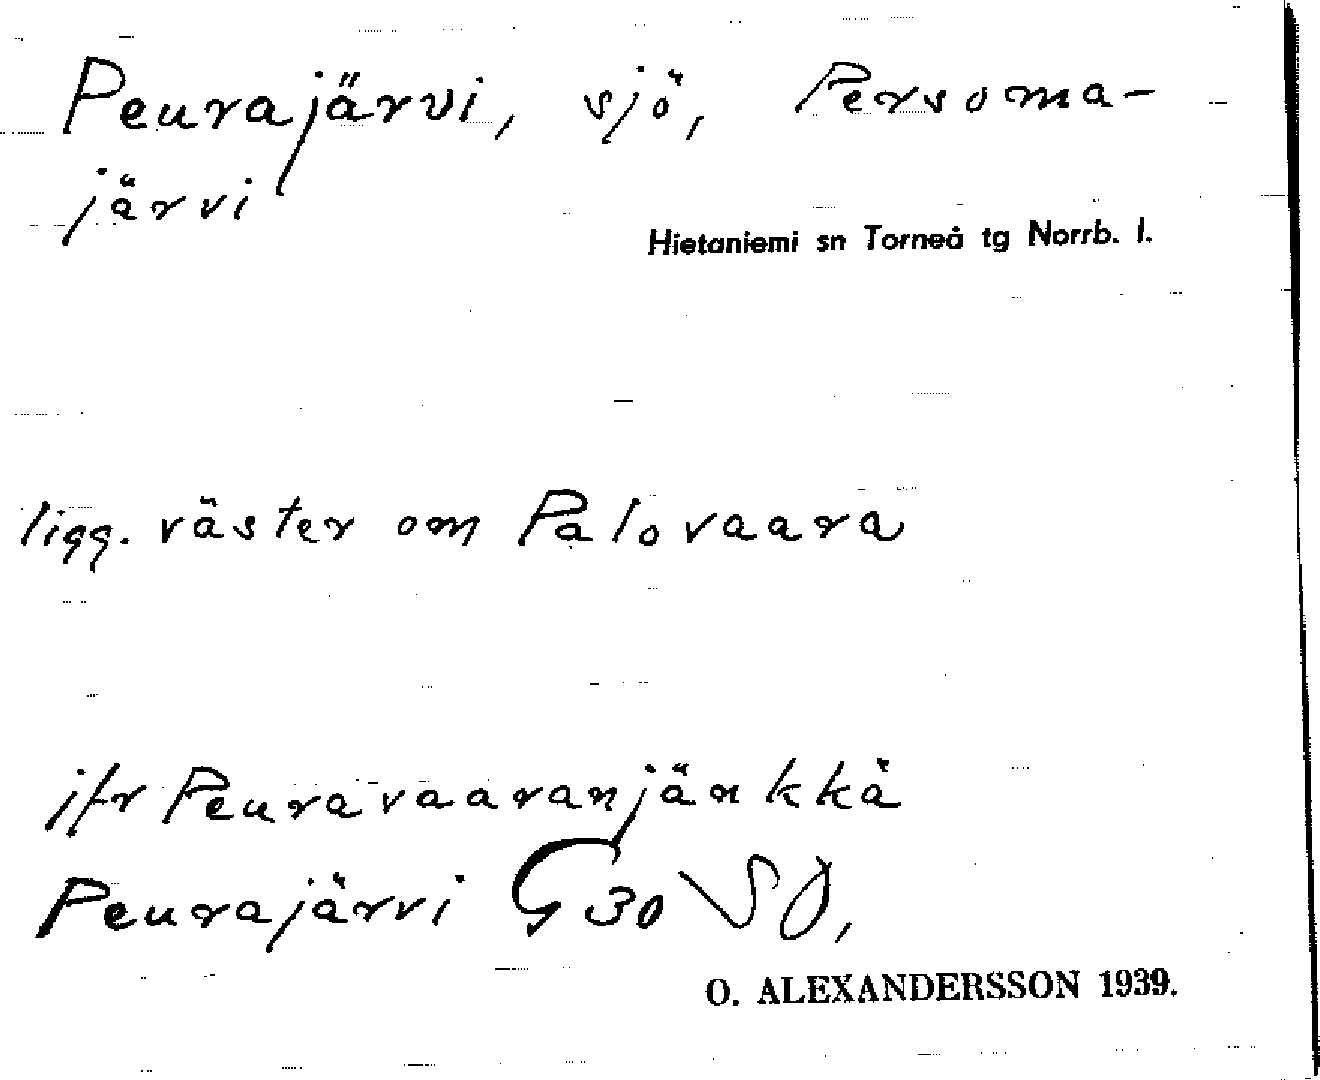 Peurajärvi, sjö, Persoma-
järvi
Hietaniemi sn Torneå tg Norrb. l.
ligg. väster om Palovaara
jfr Peuravaaranjänkkä
Peurajärvi G 30 SO,
O. ALEXANDERSSON 1939.